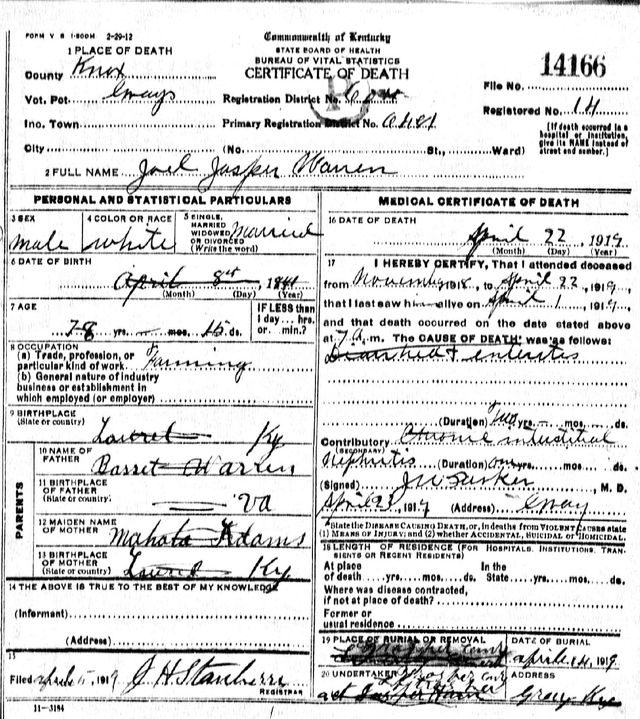 FORM V S 1-500M 2-29-12
Commonwealth of Kentucky
STATE BOARD OF HEALTH
BUREAU OF VITAL STATISTICS
CERTIFICATE OF DEATH
1 PLACE OF DEATH
County Knox
Vot. Pct. Grays
Inc. Town
City
Registration District No.
Primary Registration District No.
(No. St., Ward)
File No. 14166
Registered No. 14
[If death occurred in a
hospital or institution,
give its NAME instead of
street and number.]
2 FULL NAME Joel Jasper Warren
PERSONAL AND STATISTICAL PARTICULARS
3 SEX
male
4 COLOR OR RACE
white
5 SINGLE,
MARRIED
WIDOWED
OR DIVORCED
(Write the word)
Married
6 DATE OF BIRTH
April 8th, 1841
(Month) (Day) (Year)
7 AGE
78 yrs. — mos. 15 ds.
IF LESS than
1 day... hrs.
or... min.?
8 OCCUPATION
(a) Trade, profession, or
particular kind of work Farming
(b) General nature of industry
business or establishment in
which employed (or employer)
9 BIRTHPLACE
(State or country)
Laurel Ky
PARENTS
10 NAME OF
FATHER
Barret Warren
11 BIRTHPLACE
OF FATHER
(State or country)
Va
12 MAIDEN NAME
OF MOTHER
Mahala Adams
13 BIRTHPLACE
OF MOTHER
(State or country)
Laurel Ky
14 THE ABOVE IS TRUE TO THE BEST OF MY KNOWLEDGE
(Informant)
(Address)
15
Filed 1919 J H Stanberry
REGISTRAR
11-3184
MEDICAL CERTIFICATE OF DEATH
16 DATE OF DEATH
April 22, 1919
(Month) (Day) (Year)
17 I HEREBY CERTIFY, That I attended deceased
from November 1918, to April 22, 1919,
that I last saw him alive on April 1, 1919,
and that death occurred on the date stated above
at 7 m. The CAUSE OF DEATH was as follows:
enteritis
(Duration) two yrs. mos. ds.
Contributory Chronic interstitial
(SECONDARY)
Nephritis (Duration) yrs. mos. ds.
(Signed) J W Parker, M. D.
April 23, 1919 (Address) Gray
State the DISEASE CAUSING DEATH, or, in deaths from VIOLENT CAUSES state
(1) MEANS OF INJURY; and (2) whether ACCIDENTAL, SUICIDAL or HOMICIDAL.
18 LENGTH OF RESIDENCE (FOR HOSPITALS, INSTITUTIONS, TRAN-
SIENTS OR RECENT RESIDENTS)
At place
of death yrs. mos. ds.
In the
State yrs. mos. ds.
Where was disease contracted,
if not at place of death?
Former or
usual residence
19 PLACE OF BURIAL OR REMOVAL
DATE OF BURIAL
1919
20 UNDERTAKER
ADDRESS
Gray Ky